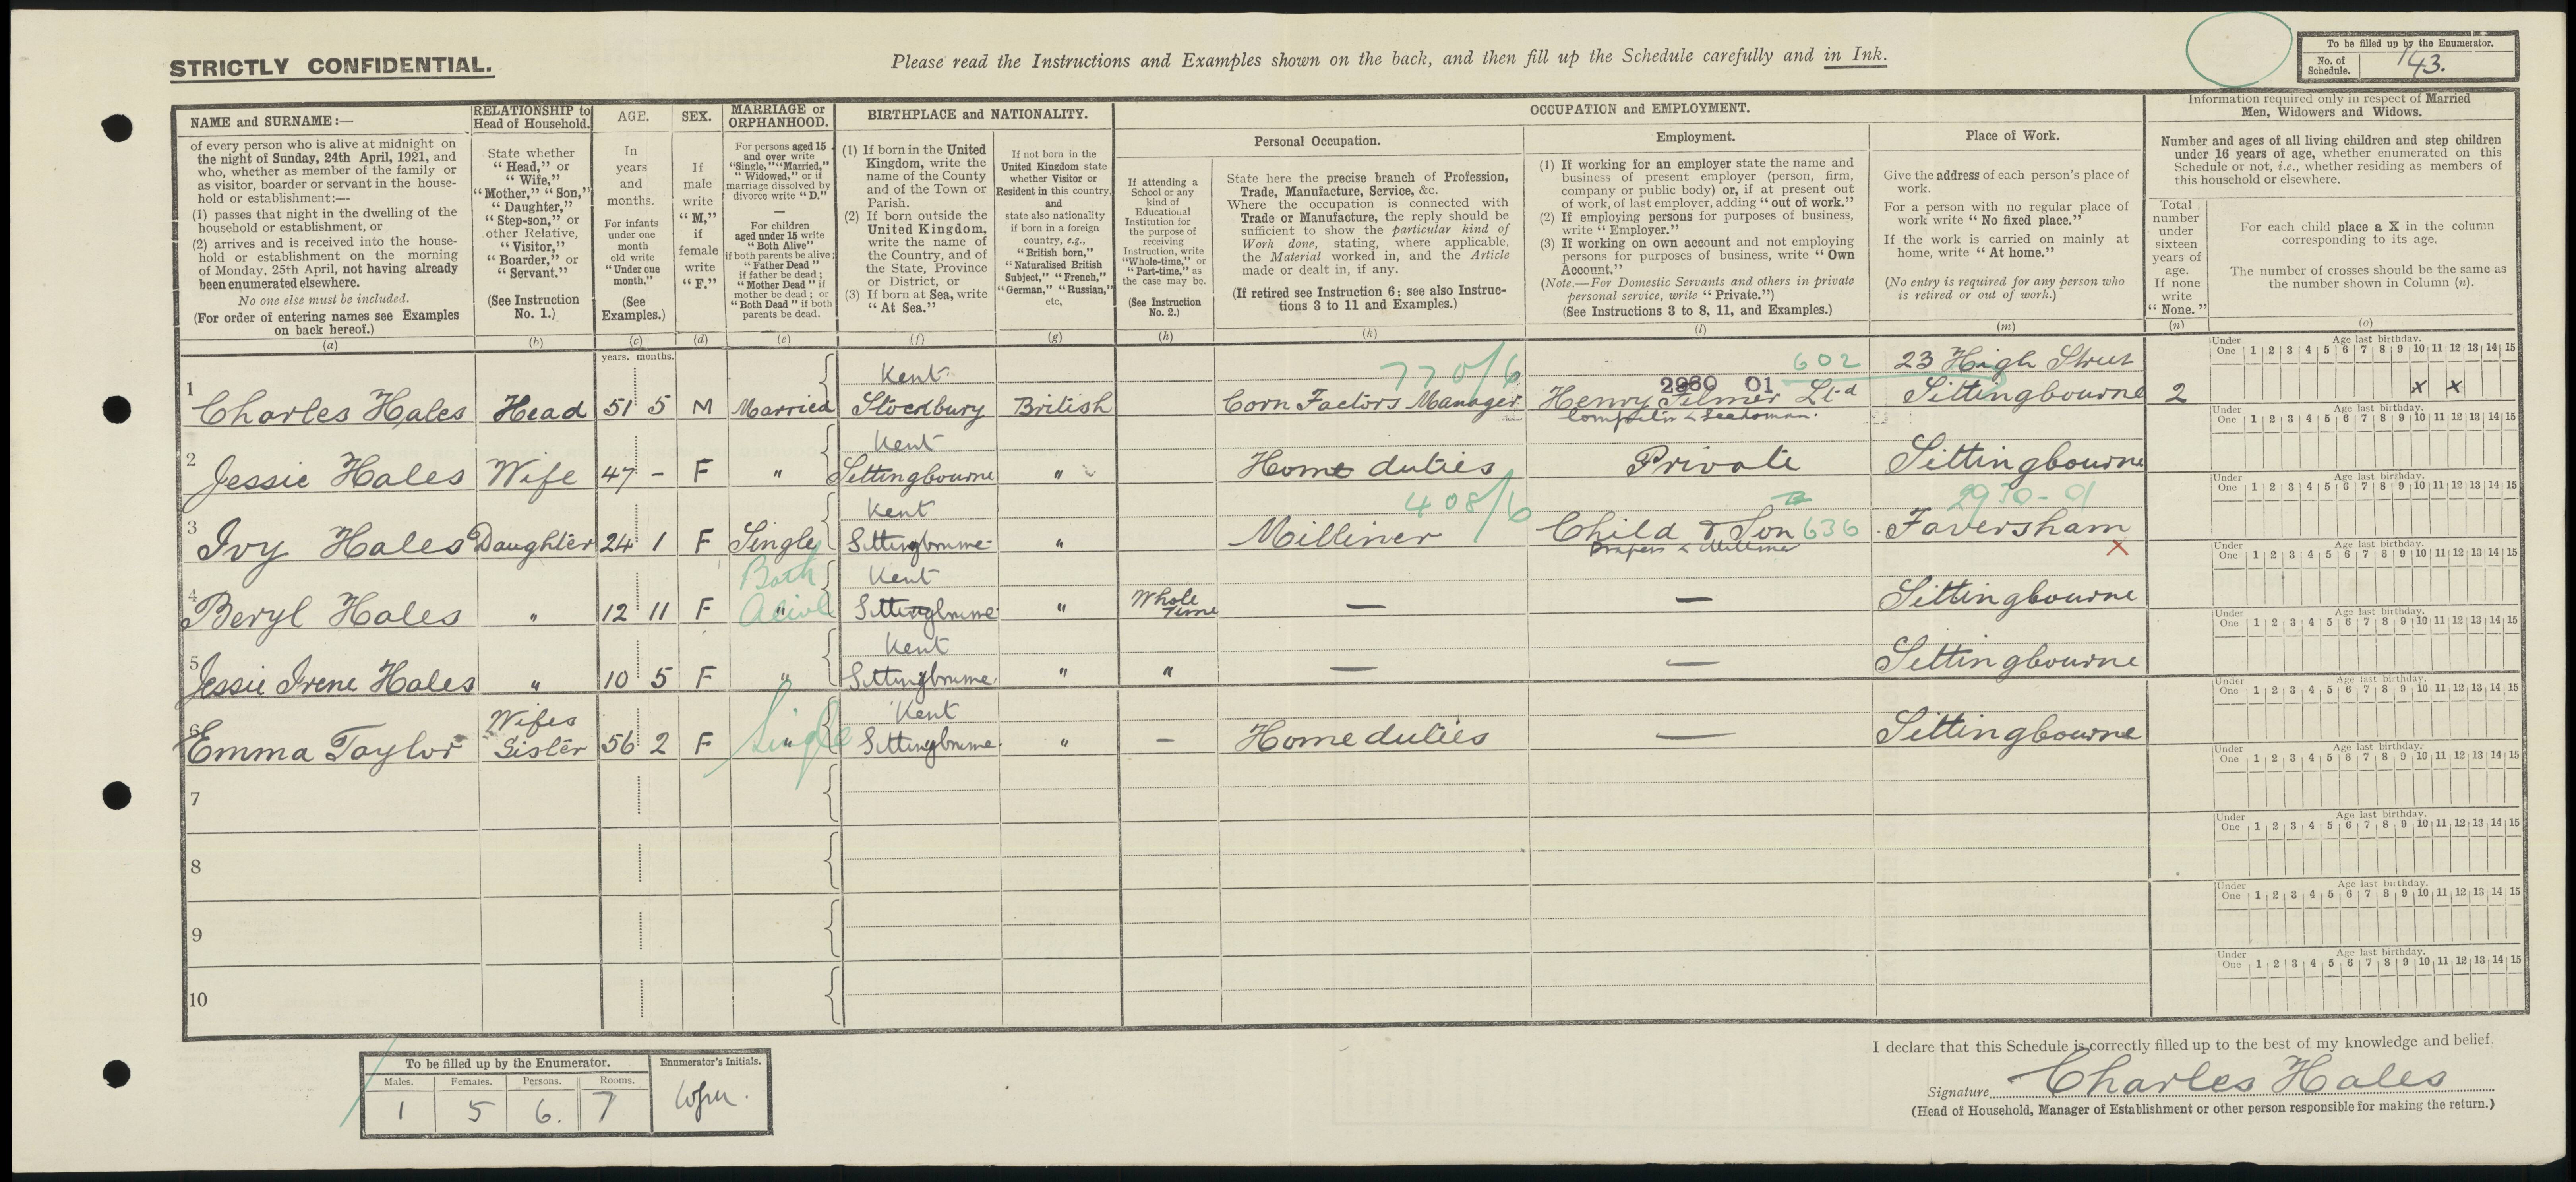 STRICTLY CONFIDENTIAL.
Please read the Instructions and Examples shown on the back, and then fill up the Schedule carefully and in Ink.
To be filled up by the Enumerator.
No. of Schedule. 143.
NAME and SURNAME:—
of every person who is alive at midnight on
the night of Sunday, 24th April, 1921, and
who, whether as member of the family or
as visitor, boarder or servant in the house-
hold or establishment:—
(1) passes that night in the dwelling of the
household or establishment, or
(2) arrives and is received into the house-
hold or establishment on the morning
of Monday, 25th April, not having already
been enumerated elsewhere.
No one else must be included.
(For order of entering names see Examples
on back hereof.)
(a)
RELATIONSHIP to
Head of Household.
State whether
"Head," or
"Wife,"
"Mother," "Son,"
"Daughter,"
"Step-son," or
other Relative,
"Visitor,"
"Boarder," or
"Servant."
(See Instruction
No. 1.)
(b)
AGE.
In
years
and
months.
For infants
under one
month
old write
"Under one
month."
(See
Examples.)
(c)
SEX.
If
male
write
"M,"
if
female
write
"F."
(d)
MARRIAGE or
ORPHANHOOD.
For persons aged 15
and over write
"Single," "Married,"
"Widowed," or if
marriage dissolved by
divorce write "D."
—
For children
aged under 15 write
"Both Alive"
if both parents be alive;
"Father Dead"
if father be dead;
"Mother Dead" if
mother be dead; or
"Both Dead" if both
parents be dead.
(e)
BIRTHPLACE and NATIONALITY.
(1) If born in the United
Kingdom, write the
name of the County
and of the Town or
Parish.
(2) If born outside the
United Kingdom,
write the name of
the Country, and of
the State, Province
or District, or
(3) If born at Sea, write
"At Sea."
(f)
If not born in the
United Kingdom state
whether Visitor or
Resident in this country.
and
state also nationality
if born in a foreign
country, e.g.,
"British born,"
"Naturalised British
Subject," "French,"
"German," "Russian,"
etc.
(g)
OCCUPATION and EMPLOYMENT.
If attending a
School or any
kind of
Educational
Institution for
the purpose of
receiving
Instruction, write
"Whole-time," or
"Part-time," as
the case may be.
(See Instruction
No. 2.)
(h)
Personal Occupation.
State here the precise branch of Profession,
Trade, Manufacture, Service, &c.
Where the occupation is connected with
Trade or Manufacture, the reply should be
sufficient to show the particular kind of
Work done, stating, where applicable,
the Material worked in, and the Article
made or dealt in, if any.
(If retired see Instruction 6; see also Instruc-
tions 3 to 11 and Examples.)
(k)
Employment.
(1) If working for an employer state the name and
business of present employer (person, firm,
company or public body) or, if at present out
of work, of last employer, adding "out of work."
(2) If employing persons for purposes of business,
write "Employer."
(3) If working on own account and not employing
persons for purposes of business, write "Own
Account."
(Note.—For Domestic Servants and others in private
personal service, write "Private.")
(See Instructions 3 to 8, 11, and Examples.)
(l)
Place of Work.
Give the address of each person's place of
work.
For a person with no regular place of
work write "No fixed place."
If the work is carried on mainly at
home, write "At home."
(No entry is required for any person who
is retired or out of work.)
(m)
Information required only in respect of Married
Men, Widowers and Widows.
Number and ages of all living children and step children
under 16 years of age, whether enumerated on this
Schedule or not, i.e., whether residing as members of
this household or elsewhere.
Total
number
under
sixteen
years of
age.
If none
write
"None."
(n)
For each child place a X in the column
corresponding to its age.
The number of crosses should be the same as
the number shown in Column (n).
(o)
years. months.
Under One Age last birthday. 1 2 3 4 5 6 7 8 9 10 11 12 13 14 15
Kent 770/6 602 23 High Street
1 Charles Hales Head 51 5 M Married Stockbury British Corn Factors Manager Henry Filmer Ltd 2960 01 Sittingbourne 2 x x
Under One Age last birthday. 1 2 3 4 5 6 7 8 9 10 11 12 13 14 15
Kent
2 Jessie Hales Wife 47 - F " Sittingbourne " Home duties Private Sittingbourne
Under One Age last birthday. 1 2 3 4 5 6 7 8 9 10 11 12 13 14 15
Kent 408/6 2930-01
3 Ivy Hales Daughter 24 1 F Single Sittingbourne " Milliner Child & Son 636 Faversham
Drapers & Milliner X
Under One Age last birthday. 1 2 3 4 5 6 7 8 9 10 11 12 13 14 15
Both Kent
4 Beryl Hales " 12 11 F Alive " Sittingbourne " Whole Time — — Sittingbourne
Under One Age last birthday. 1 2 3 4 5 6 7 8 9 10 11 12 13 14 15
Kent
5 Jessie Irene Hales " 10 5 F " Sittingbourne " " — — Sittingbourne
Under One Age last birthday. 1 2 3 4 5 6 7 8 9 10 11 12 13 14 15
Wifes Kent
6 Emma Taylor Sister 56 2 F Single " Sittingbourne " — Home duties — Sittingbourne
Under One Age last birthday. 1 2 3 4 5 6 7 8 9 10 11 12 13 14 15
7
Under One Age last birthday. 1 2 3 4 5 6 7 8 9 10 11 12 13 14 15
8
Under One Age last birthday. 1 2 3 4 5 6 7 8 9 10 11 12 13 14 15
9
Under One Age last birthday. 1 2 3 4 5 6 7 8 9 10 11 12 13 14 15
10
To be filled up by the Enumerator.
Males. Females. Persons. Rooms.
1 5 6. 7
Enumerator's Initials.
I declare that this Schedule is correctly filled up to the best of my knowledge and belief.
Signature Charles Hales
(Head of Household, Manager of Establishment or other person responsible for making the return.)